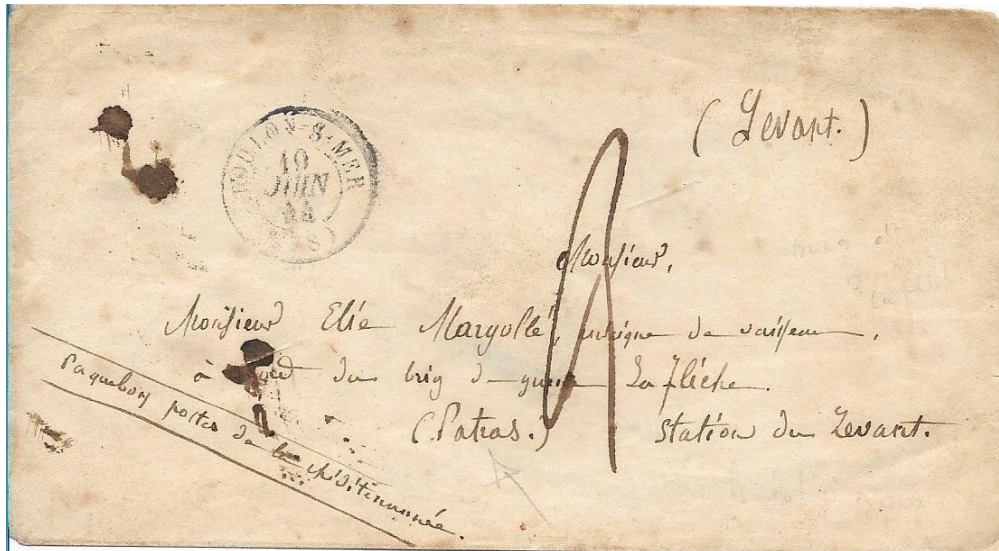 (Levant.)
TOULON-S-MER
19
JUIN
44
Monsieur,
Monsieur Elie Margollé, enseigne de vaisseau,
à bord du brig de guerre La flèche.
(Patras.) station du Levant.
Paquebot postes de la Méditerrannée.